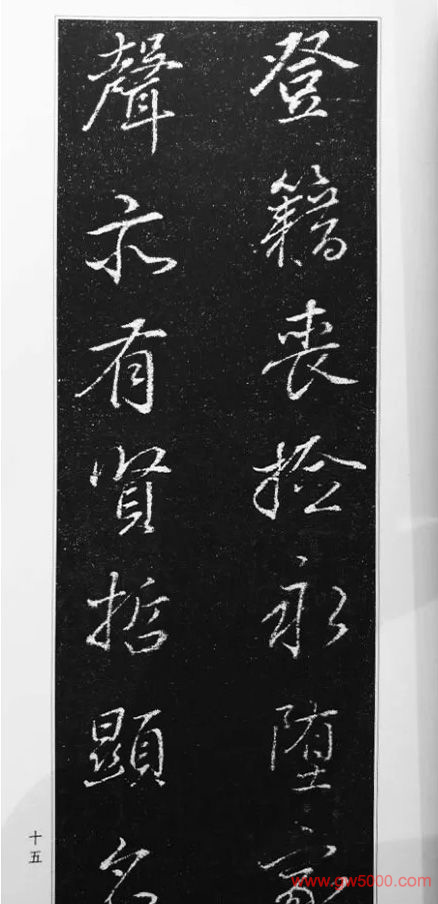 登籍喪撿永墮家
聲亦有賢哲顯名
十五
www.gw5000.com